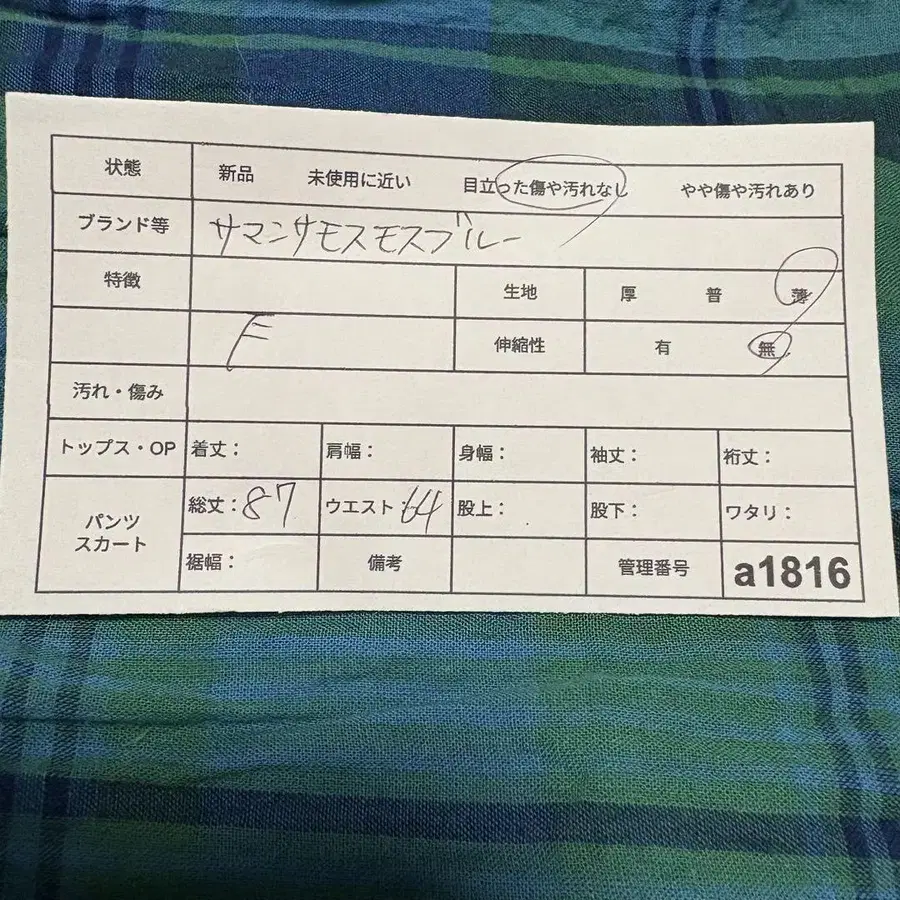 状態 新品 未使用に近い 目立った傷や汚れなし やや傷や汚れあり
ブランド等 サマンサモスモスブルー
特徴 生地 厚 普 薄
F 伸縮性 有 無
汚れ・傷み
トップス・OP 着丈： 肩幅： 身幅： 袖丈： 裄丈：
パンツ スカート 総丈：87 ウエスト：64 股上： 股下： ワタリ：
裾幅： 備考 管理番号 a1816